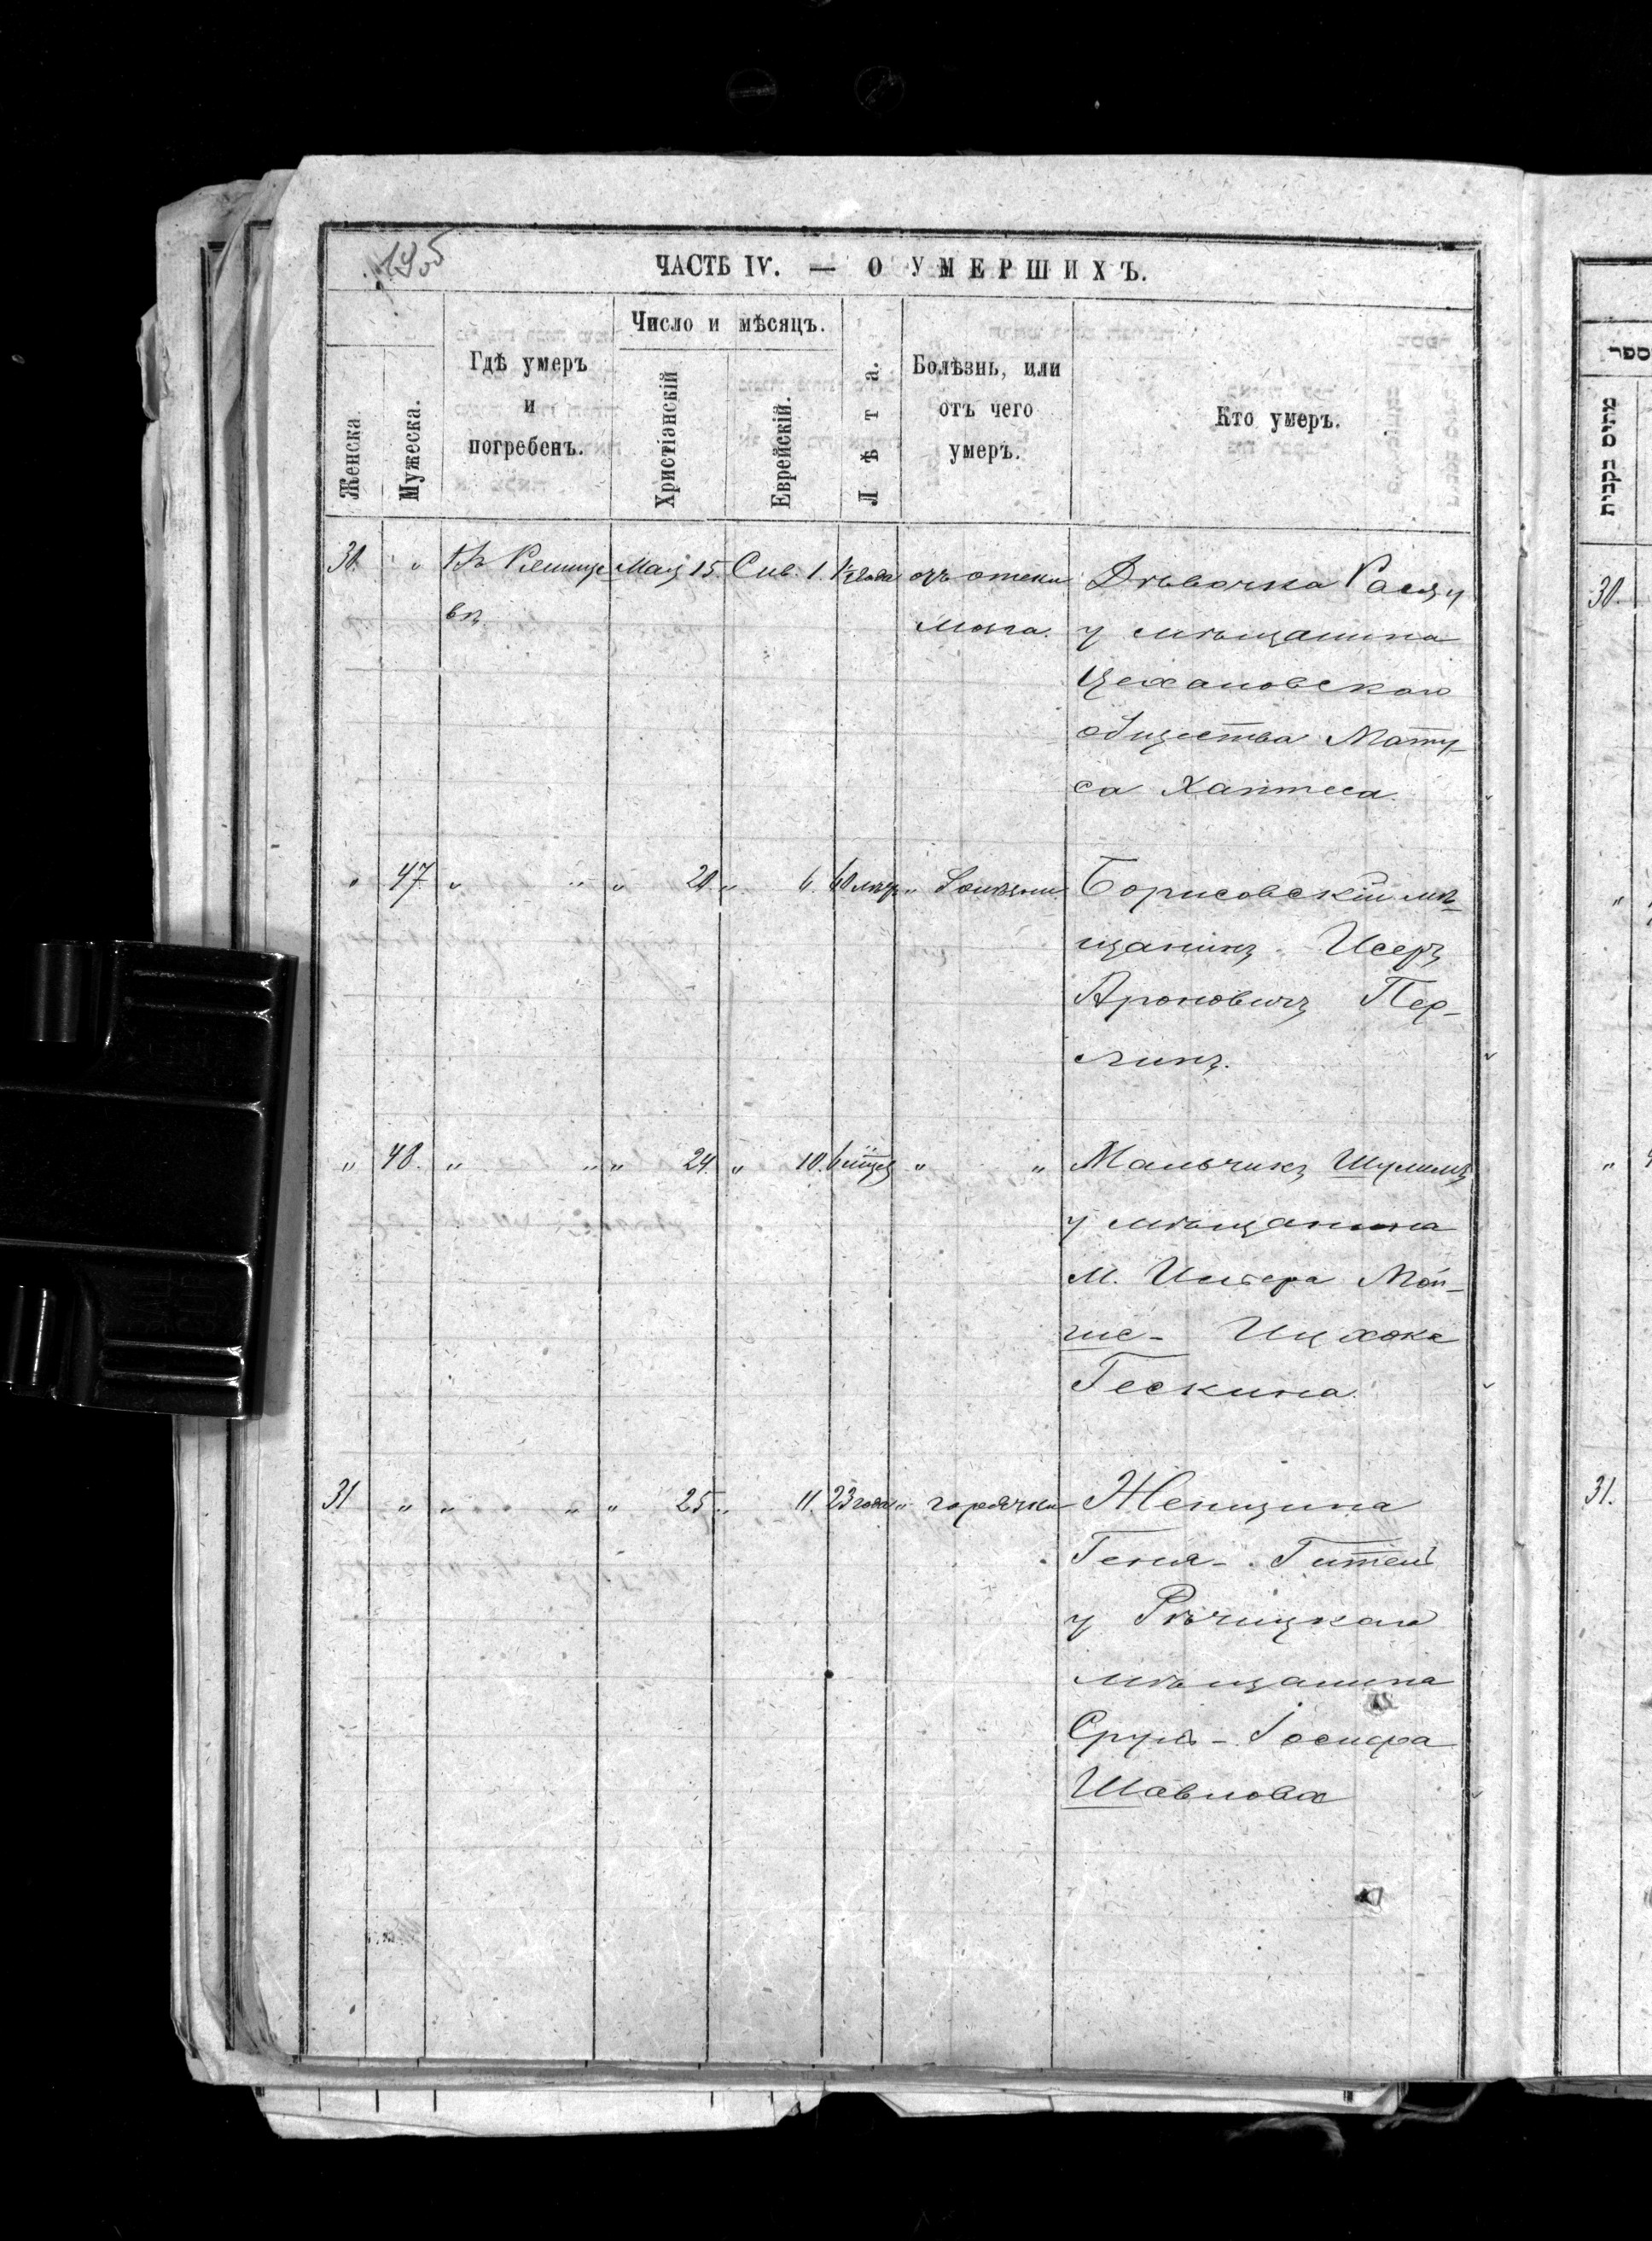 1905
ЧАСТЬ IV. — О УМЕРШИХЪ.
Женска
Мужеска.
Гдѣ умеръ
и
погребенъ.
Число и мѣсяцъ.
Христіанскій
Еврейскій.
Лѣта.
Болѣзнь, или
отъ чего
умеръ.
Кто умеръ.
30. " Въ Мая 15 Сив. 1. ½ года отъ отека Дѣвочка Рася
мозга. у мѣщанина
Цехановскаго
общества Мату-
са
" 47 " " " 20 " 6. 60 лѣтъ " Борисовскій мѣ-
щанинъ Исеръ
Ароновичъ Пер-
линъ.
" 48. " " " 24. " 10. 6 " " Мальчикъ
у мѣщанина
м. Мой-
ше- Ицхока
Гескина.
31 " " " " 25 " 11. 23 года " горячки Женщина
Геня- Гитель
у Рѣчицкаго
мѣщанина
Сруль- Іосифа
Шавлова
ספר
מתים נקבות
30.
"
"
31.